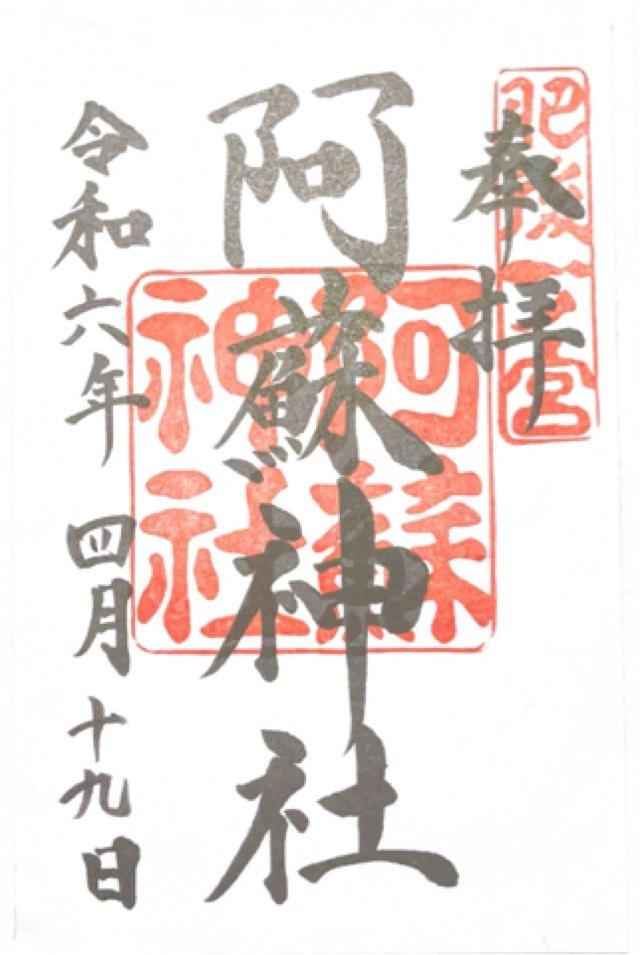 肥後一之宮
奉拝
阿蘇神社
阿蘇神社
令和六年 四月 十九日